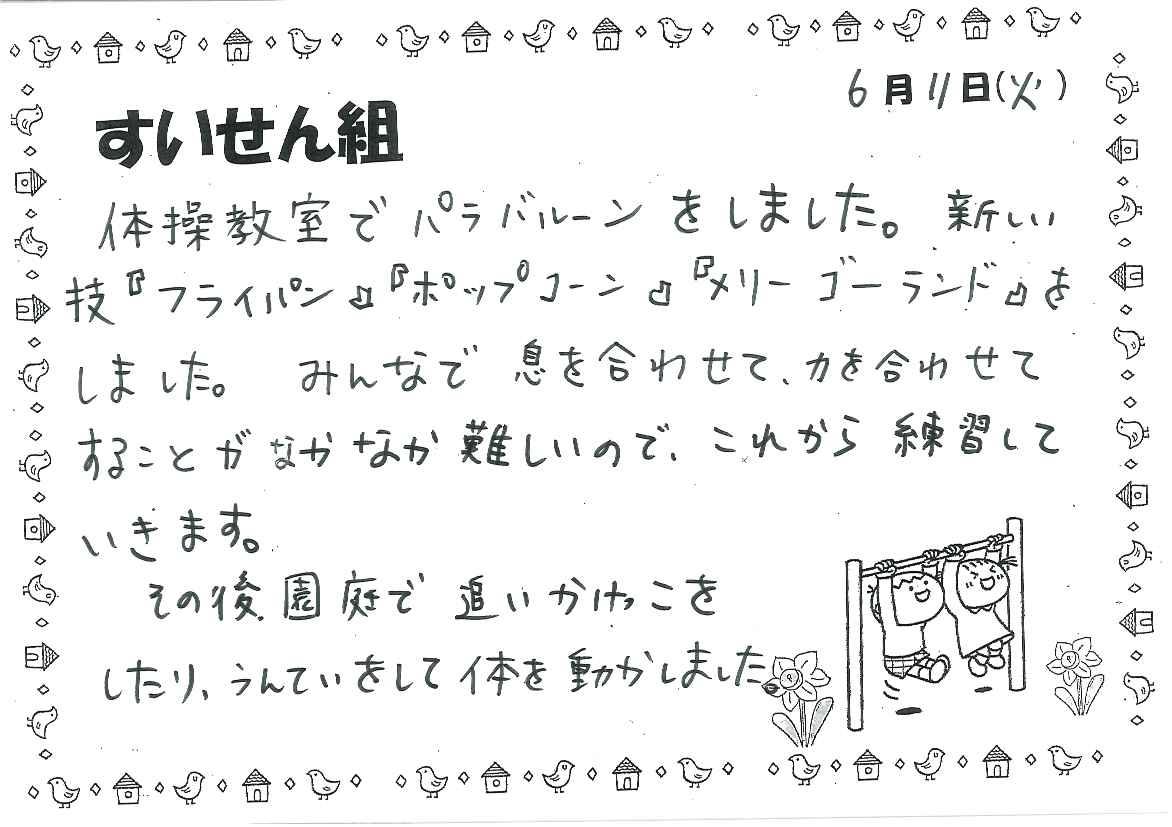 6月11日(火)
すいせん組
体操教室でパラバルーンをしました。新しい
技『フライパン』『ポップコーン』『メリーゴーランド』を
しました。 みんなで息を合わせて、力を合わせて
することがなかなか難しいので、これから練習して
いきます。
その後、園庭で追いかけっこを
したり、うんていをして体を動かしました。